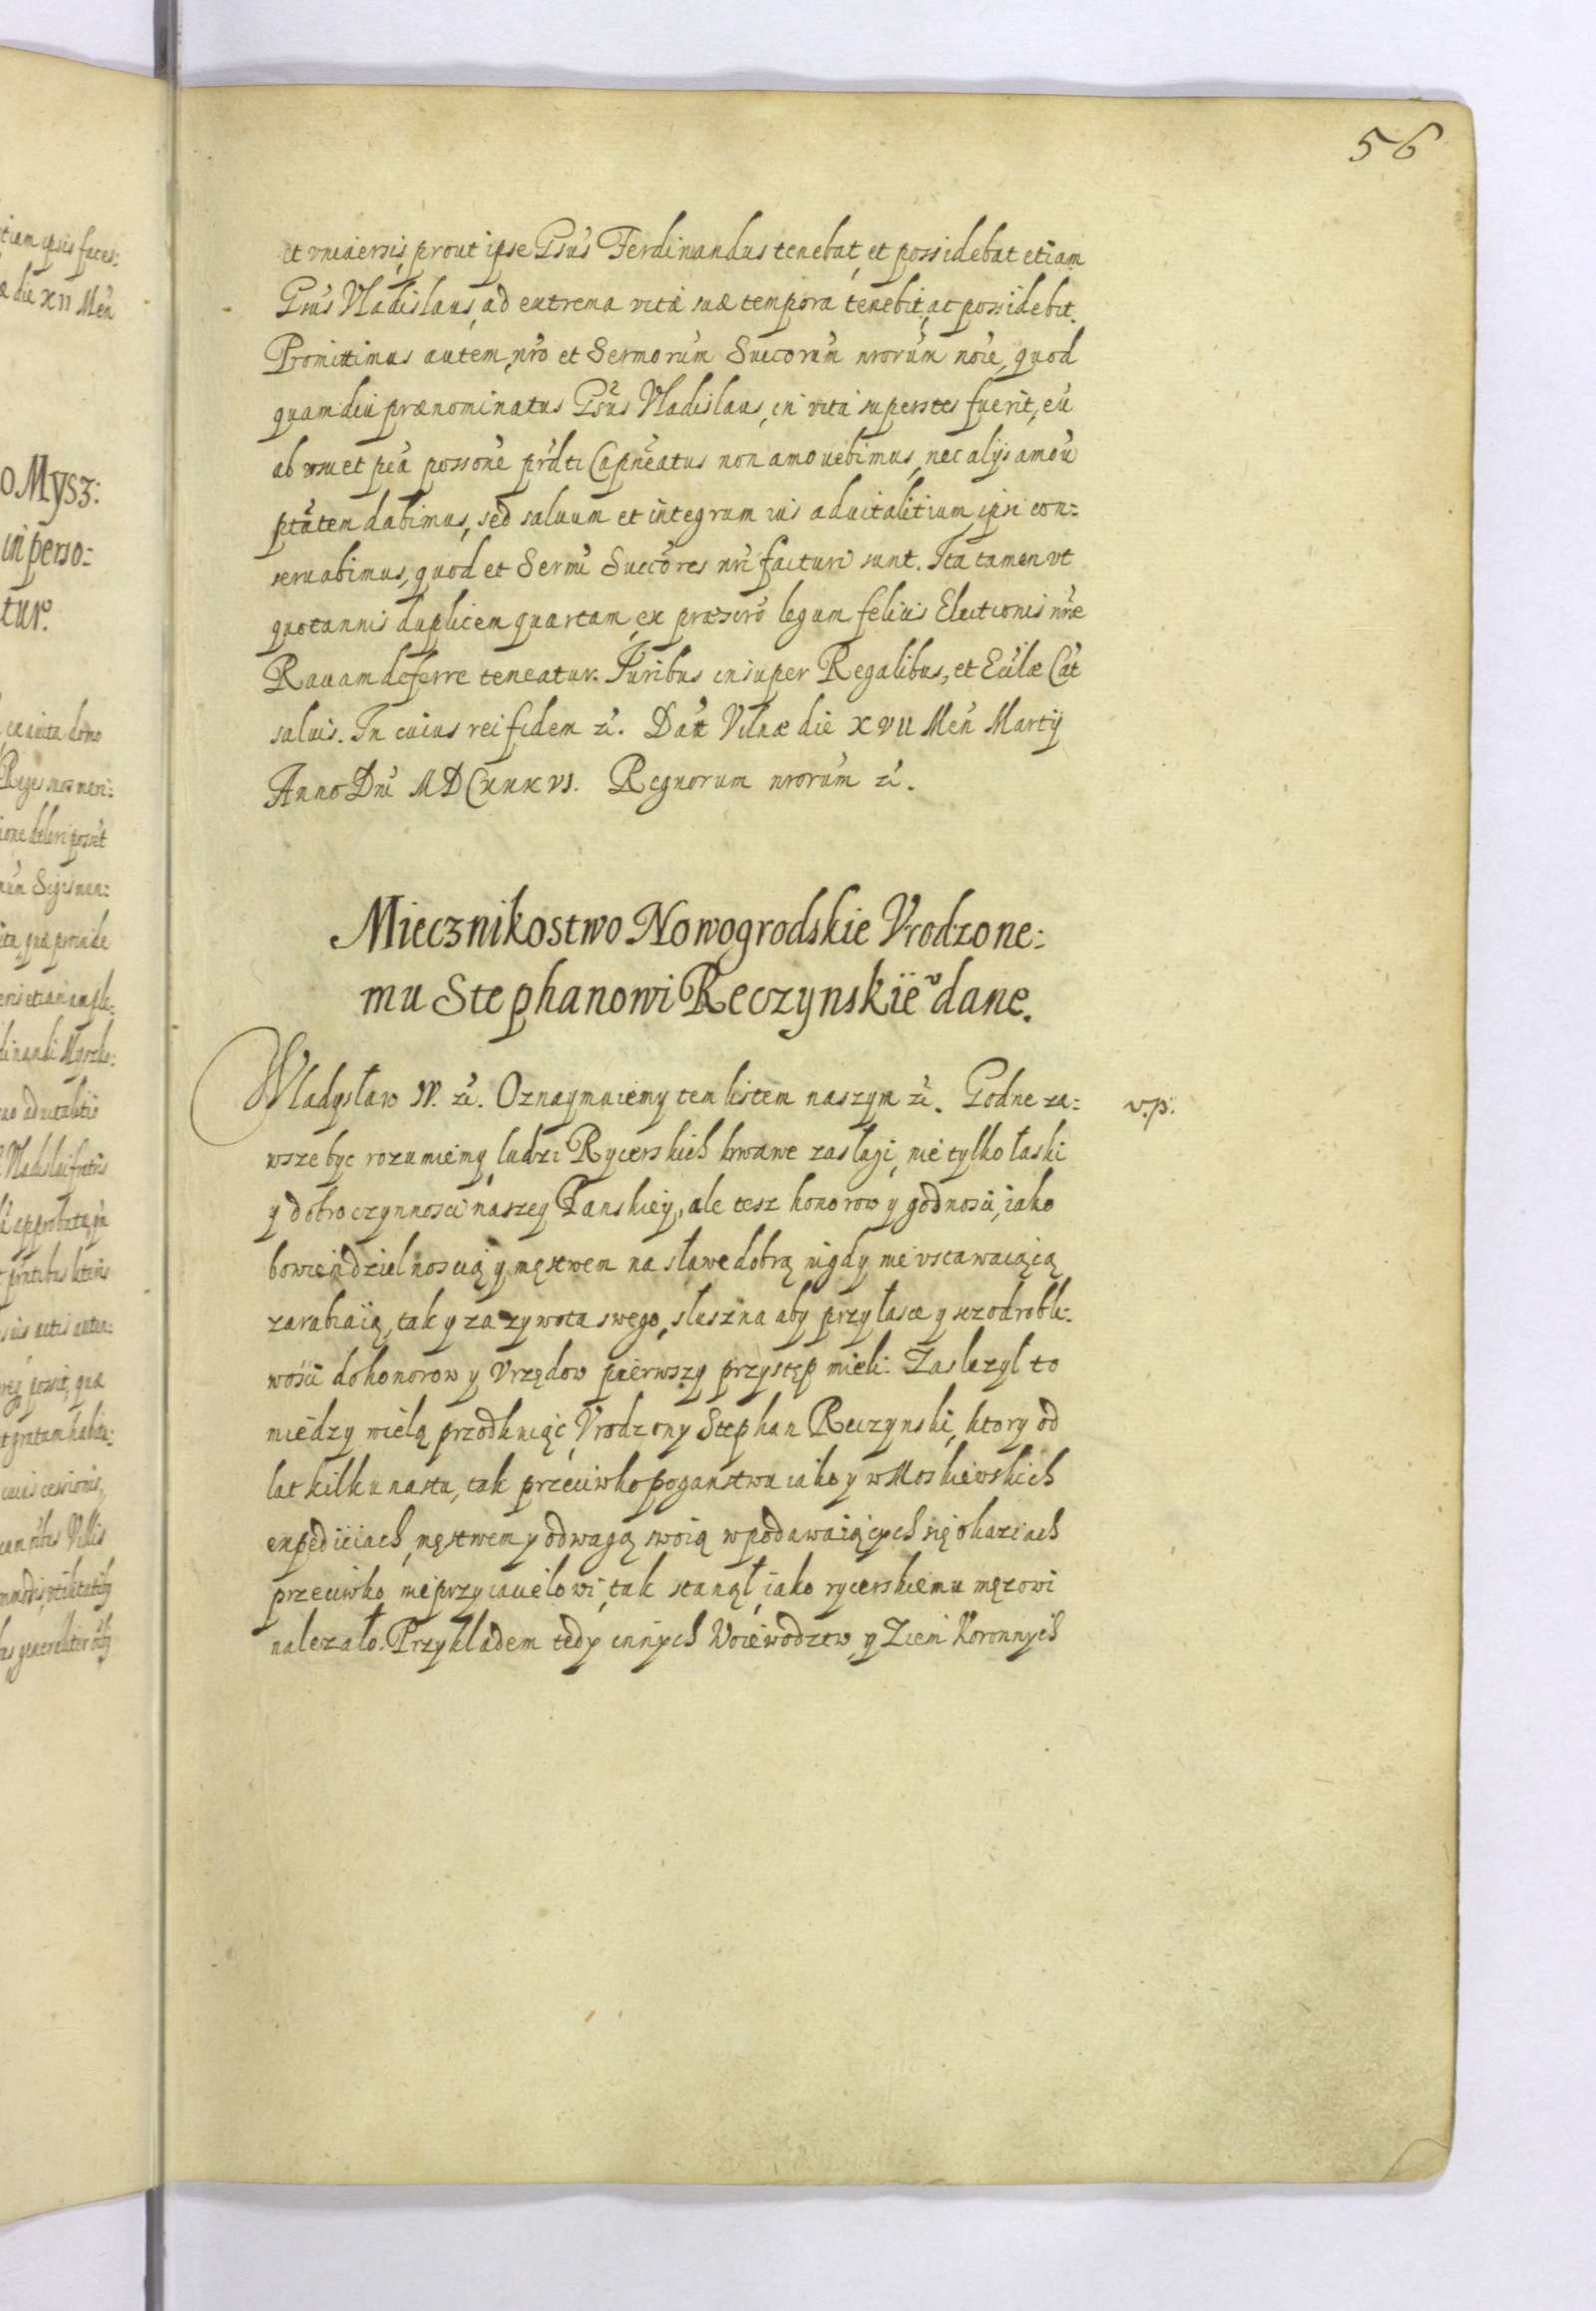 56
et vniuersis, prout ipse Gsus Ferdinandus tenebat, et possidebat etiam
Gsus Vladislaus, ad extrema vitæ suæ tempora tenebit, ac possidebit.
Promittimus autem, nro et Sermorum Succorum nrorum noie, quod
quamdiu prænominatus Gsus Vladislaus, in vita superstes fuerit, eu
ab usu et pca possone prdti Capneatus non amouebimus, nec alijs amou
ptatem dabimus, sed saluum et integrum ius aduitalitium ipsi con:
seruabimus, quod et Sermi Succores nri facturi sunt. Ita tamen vt
quotannis duplicem quartam, ex præscro legum felicis Electionis nræ
Rauam deferre teneatur. Juribus insuper Regalibus, et Ecclæ Cat
saluis. In cuius rei fidem zc. Dat Vilnæ die XVII Men Martij
Anno Dni MDCXXXVI. Regnorum nrorum zc.
Miecznikostwo Nowogrodskie Vrodzone:
mu Stephanowi Reczynskieo dane.
Władysław IV. zc. Oznaymuiemy tem listem naszym zc. Godne za: v.p.
wsze byc rozumiemy, ludzi Rycerskich krwawe zasługi, nie tylko łaski
y dobroczynnosci naszey Panskiey, ale tesz honorow y godnosci, iako
bowiem dzielnoscią y męstwem na sławe dobrą nigdy nie vstawaiącą
zarabiaią, tak y za zywota swego, słuszna aby przy łasce y sczodrobli:
wości do honorow y Vrzędow pierwszy przystęp mieli. Zasłuzył to
miedzy wielą przodkuiąc, Vrodzony Stephan Reczynski, ktory od
lat kilku nastu, tak przeciwko poganstwu iako y w Moskiewskich
expediciach, męstwem y odwagą swoią w podawaiących się okaziach
przeciwko nieprzyiacielowi, tak stanął, iako rycerskiemu męzowi
nalezało. Przykładem tedy innych Woiewodztw, y Ziem Koronnych